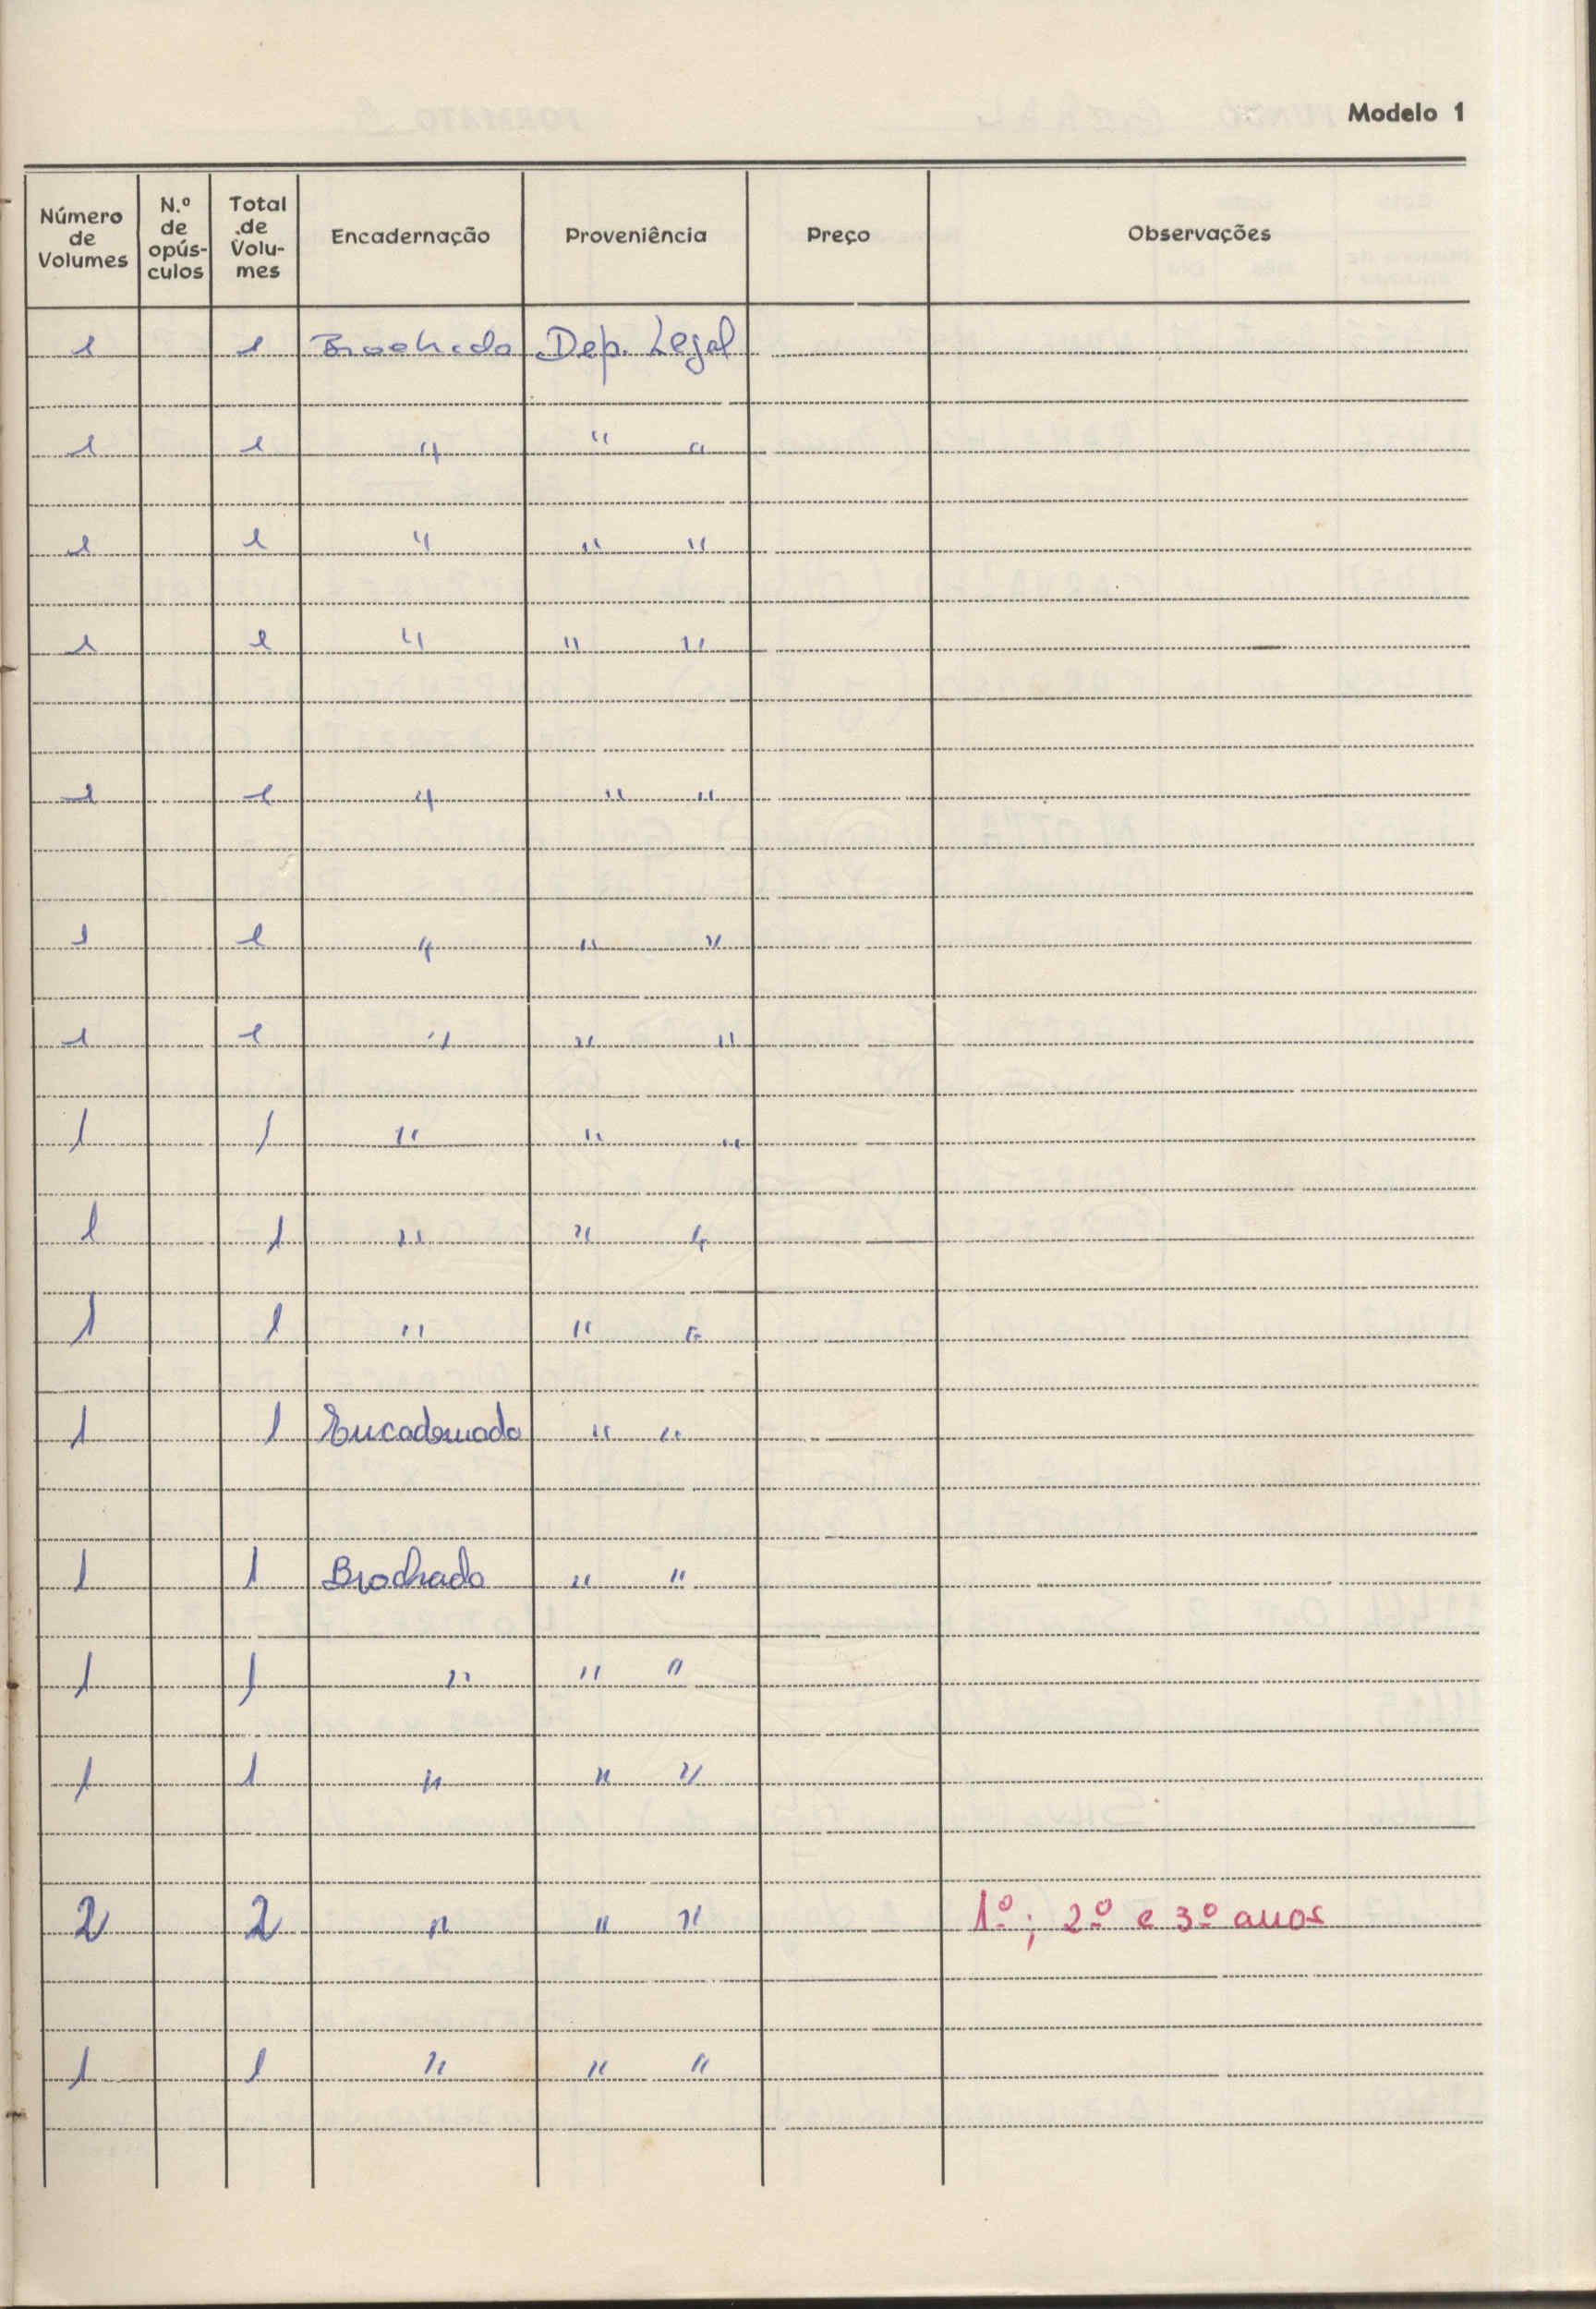 Modelo 1
Número de Volumes N.º de opús-culos Total de Volu-mes Encadernação Proveniência Preço Observações
1 1 Brochado Dep. Legal
1 1 " " "
1 1 " " "
1 1 " " "
1 1 " " "
1 1 " " "
1 1 " " "
1 1 " " "
1 1 " " "
1 1 " " "
1 1 Encadernado " "
1 1 Brochado " "
1 1 " " "
1 1 " " "
2 2 " " " 1º; 2º e 3º anos
1 1 " " "